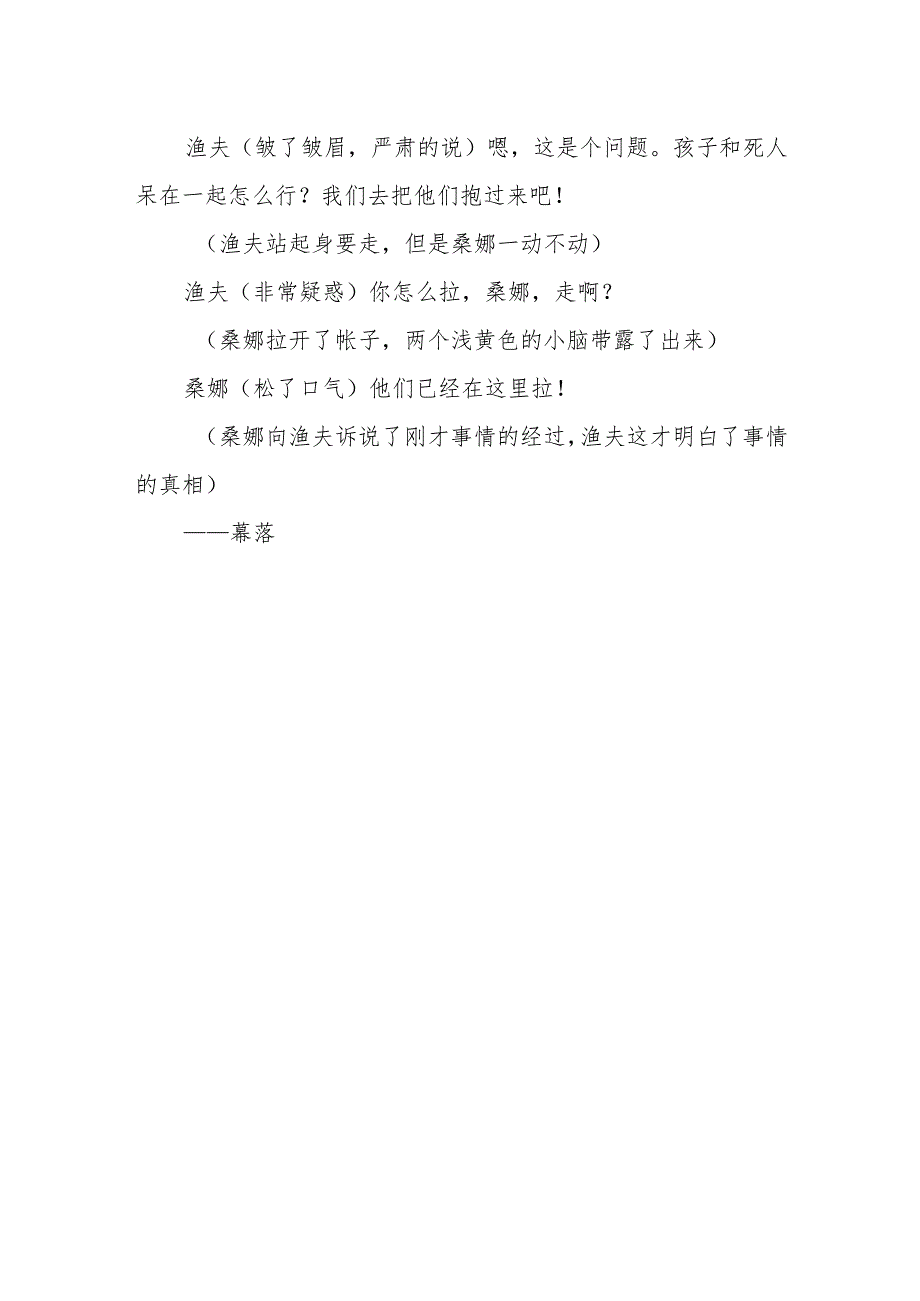 渔夫（皱了皱眉，严肃的说）嗯，这是个问题。孩子和死人
呆在一起怎么行？我们去把他们抱过来吧！
（渔夫站起身要走，但是桑娜一动不动）
渔夫（非常疑惑）你怎么拉，桑娜，走啊？
（桑娜拉开了帐子，两个浅黄色的小脑带露了出来）
桑娜（松了口气）他们已经在这里拉！
（桑娜向渔夫诉说了刚才事情的经过,渔夫这才明白了事情
的真相）
——幕落